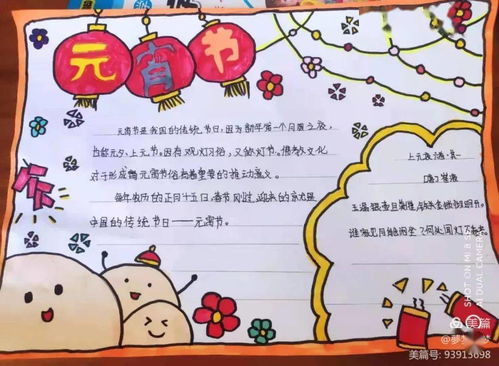 元宵节
元宵节是我国的传统节日,因为新年第一个月圆之夜,
也称元夕、上元节。因有观灯习俗,又称灯节。佛教文化
对于形成元宵节俗有着重要的推动意义。
每年农历的正月十五日,春节刚过,迎来的就是
中国的传统节日——元宵节。
上元夜六首·其一
(唐)崔液
玉漏银壶且莫催,铁关金锁彻明开。
谁家见月能闲坐?何处闻灯不看来。
SHOT ON MI 8 SE
AI DUAL CAMERA
美篇
美篇号: 93913698